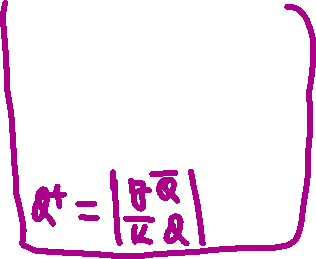 Q⁺ = | J Q̅
K̅ Q |